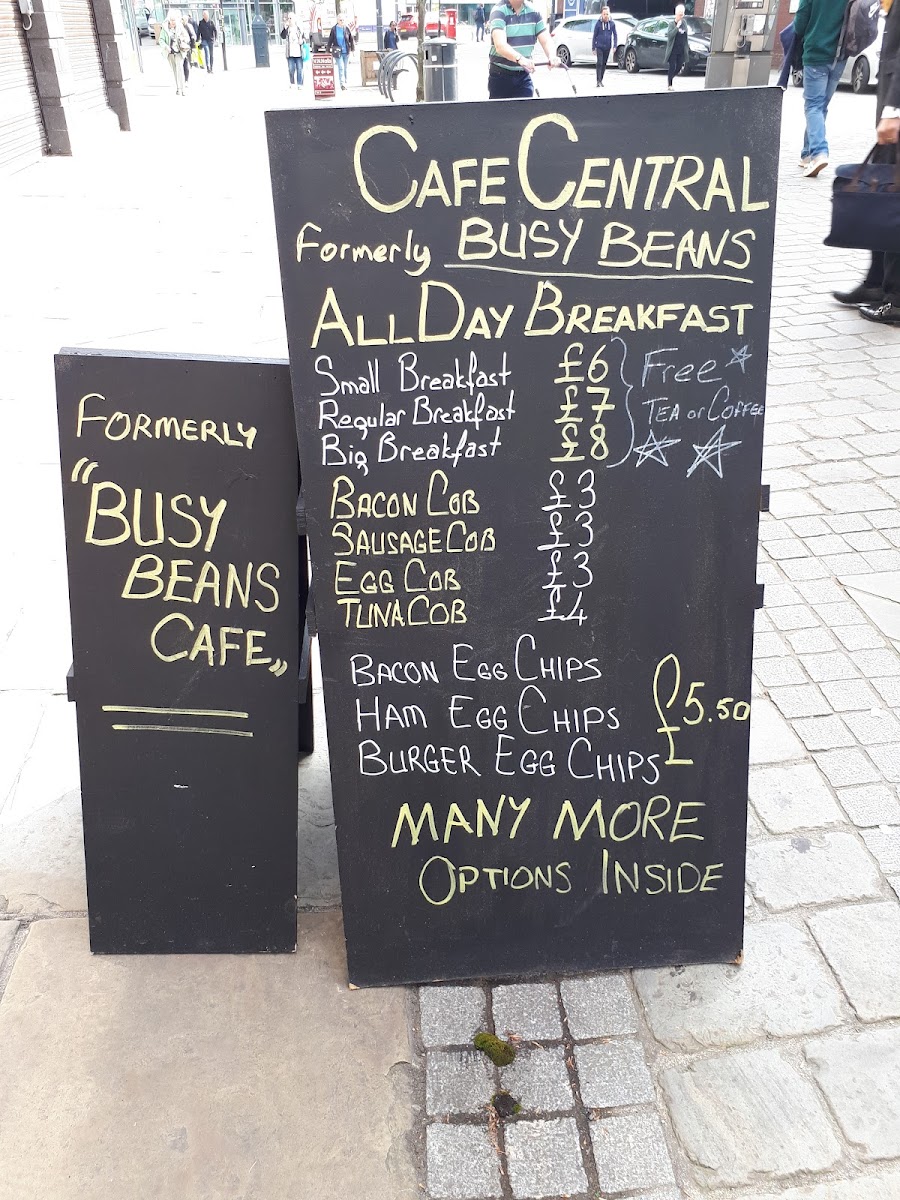 FORMERLY
"BUSY
BEANS
CAFE"
CAFE CENTRAL
Formerly BUSY BEANS
ALL DAY BREAKFAST
Small Breakfast £6
Regular Breakfast £7
Big Breakfast £8
Free
TEA or COFFEE
BACON COB £3
SAUSAGE COB £3
EGG COB £3
TUNA COB £4
BACON EGG CHIPS
HAM EGG CHIPS £5.50
BURGER EGG CHIPS
MANY MORE
OPTIONS INSIDE